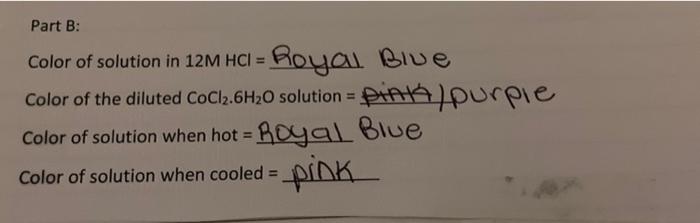 Part B:
Color of solution in 12M HCl = Royal Blue
Color of the diluted CoCl₂.6H₂O solution = pink/purple
Color of solution when hot = Royal Blue
Color of solution when cooled = pink